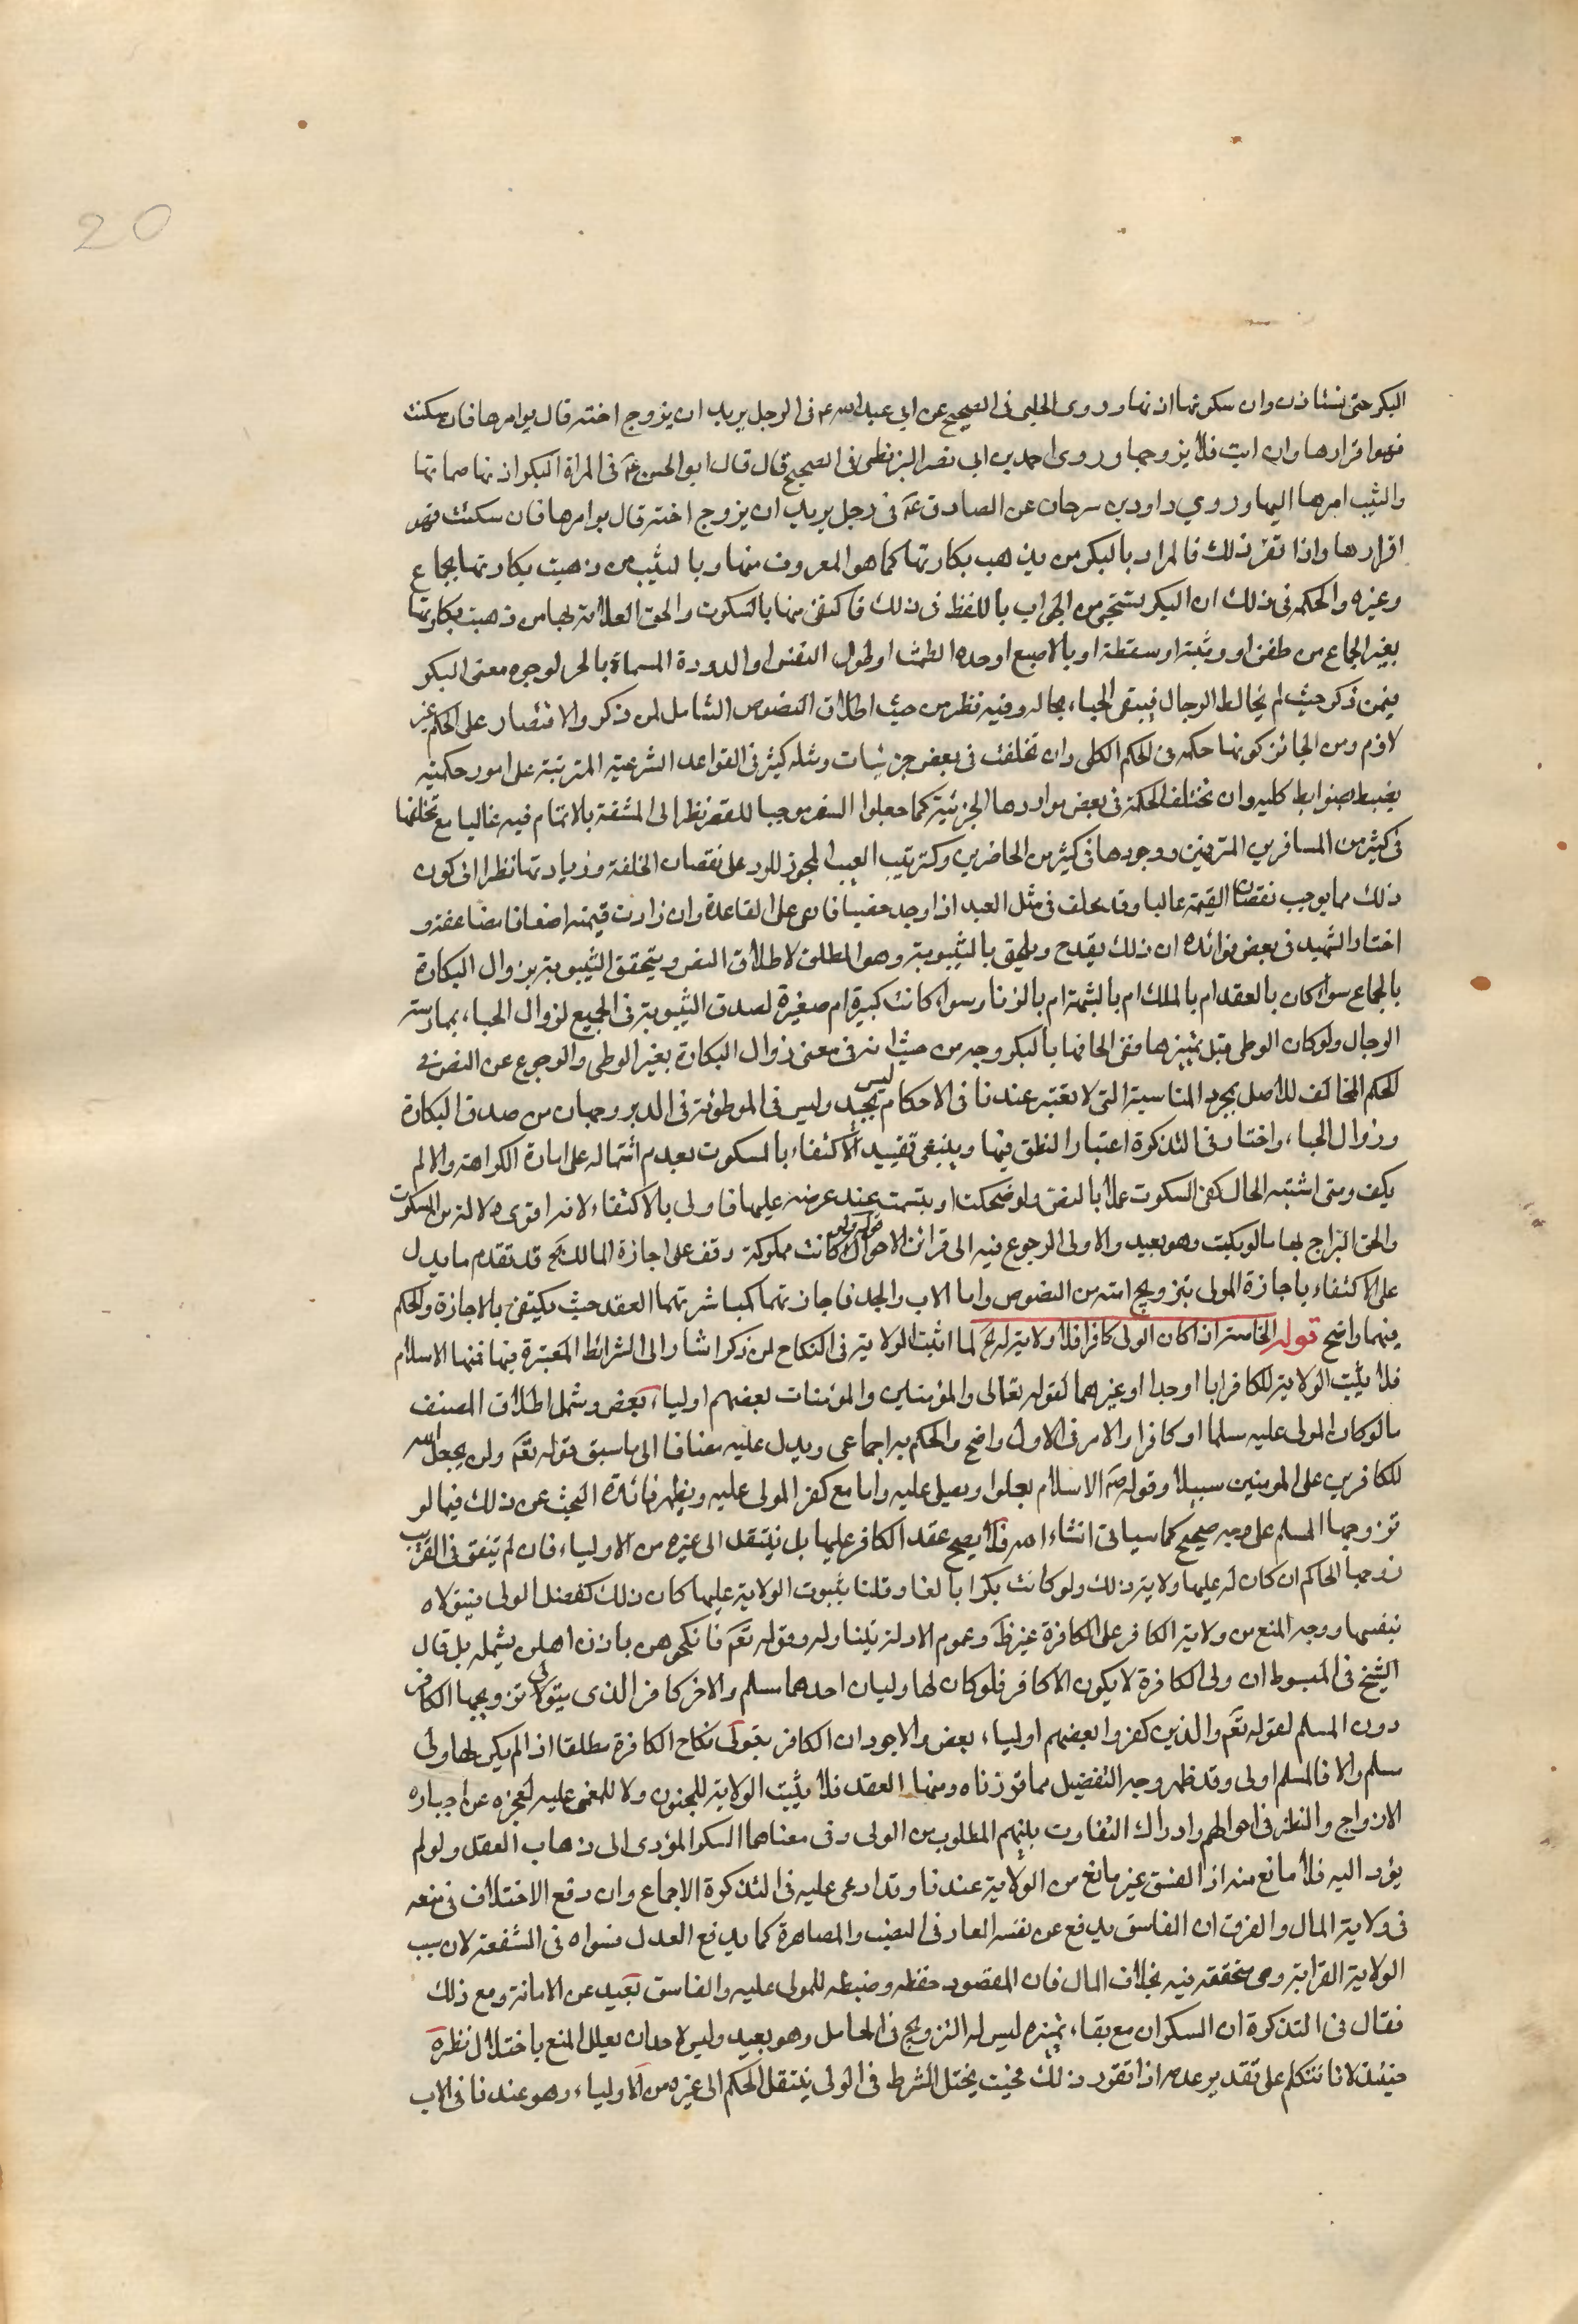 20
البكر حتى تستاذن وان سكوتها اذنها وروى الحلبى فى الصحيح عن ابي عبد الله ع فى الرجل يريد ان يزوج اخته قال يوامرها فان سكتت
فهو اقرارها وان ابت فلا يزوجها وروى احمد بن ابي نصر البزنطى فى الصحيح قال قال ابو الحسن ع فى المراة البكر اذنها صماتها
والثيب امرها اليها وروي داود بن سرحان عن الصادق ع فى رجل يريد ان يزوج اخته قال يوامرها فان سكتت فهو
اقرارها واذا تقرر ذلك فالمراد بالبكر من لم يذهب بكارتها كما هو المعروف منها وبالثيب من ذهبت بكارتها بجماع
وغيره والحكمة فى ذلك ان البكر تستحيي من الجواب باللفظ فى ذلك فاكتفى منها بالسكوت والحق العلامة بها من ذهبت بكارتها
بغير الجماع من طفرة او وثبة او سقطة او بالاصبع او حدة الطمث او طول التعنس او الدودة المسماة بالحر لوجود معنى البكر
فيمن ذكر حيث لم يخالط الرجال فيبقى الحياء بحاله وفيه نظر من حيث اطلاق النصوص الشامل لمن ذكر والاقتصار على الحكم غير
لازم ومن الجائز كونها حكمة فى الحكم الكلى وان تخلفت فى بعض جزئيات ومثله كثير فى القواعد الشرعية المترتبة على امور حكمية
يضبط بضوابط كلية وان تختلف الحكمة فى بعض مواردها الجزئية كما جعلوا السفر موجبا للقصر نظرا الى المشقة بالاتمام فيه غالبا مع تخلفها
فى كثير من المسافرين المترفهين ووجودها فى كثير من الحاضرين وكترتيب العيب المجوز للرد على نقصان الخلقة وزيادتها نظرا الى كون
ذلك مما يوجب نقصان القيمة غالبا وقد يخلف فى مثل العبد اذا وجد خصيا فانه على القاعدة وان زادت قيمته اضعافا مضاعفة و
اختار الشهيد فى بعض فوائده ان ذلك يقدح ويلحق بالثيبوبة وهو المطلق لاطلاق النص ويتحقق الثيبوبة بزوال البكارة
بالجماع سواء كان بالعقد ام بالملك ام بالشبهة ام بالزنا وسواء كانت كبيرة ام صغيرة لصدق الثيبوبة فى الجميع لزوال الحياء بممارسة
الرجال ولو كان الوطى قبل تميزها ففى الحاقها بالبكر وجه من حيث انه فى معنى زوال البكارة بغير الوطى والرجوع عن النص فى
الحكم المخالف للاصل بمجرد المناسبة التى لا تعتبر عندنا فى الاحكام ليس بجيد وليس فى الموطوئة فى الدبر وجهان من صدق البكارة
وزوال الحياء واختار فى التذكرة اعتبار النطق فيها وينبغى تقييد الاكتفاء بالسكوت بعدم اشتماله على امارة الكراهة والا لم
يكف ومتى اشتبه الحال كفى السكوت عملا بالنص ولو ضحكت او تبسمت عند عرضه عليها فاولى بالاكتفاء لانه اقوى دلالة من السكوت
والحق البراج بها ما لو بكت وهو بعيد والاولى الرجوع فيه الى قرائن الاحوال قوله ولو كانت مملوكة وقف على اجازة المالك الخ قد تقدم ما يدل
على الاكتفاء باجازة المولى بتزويج امته من النصوص واما الاب والجد فاجازتهما كمباشرتهما العقد حيث يكتفى بالاجازة والحكم
فيهما واضح قوله الخامسة اذا كان الولى كافرا فلا ولاية له الخ لما اثبت الولاية فى النكاح لمن ذكر اشار الى الشرائط المعتبرة فيها فمنها الاسلام
فلا يثبت الولاية للكافر ابا او جدا او غيرهما لقوله تعالى والمؤمنين والمؤمنات بعضهم اولياء بعض وشمل اطلاق المصنف
ما لو كان المولى عليه مسلما او كافرا والامر فى الاول واضح والحكم به اجماعى ويدل عليه مضافا الى ما سبق قوله تعم ولن يجعل الله
للكافرين على المومنين سبيلا وقوله ص الاسلام يعلوا ويعلى عليه واما مع كفر المولى عليه ويظهر فائدة البحث عن ذلك فيما لو
تزوجها المسلم على وجه صحيح كما سياتى انشاء الله فلا يصح عقد الكافر عليها بل ينتقل الى غيره من الاولياء فان لم يتفق فى القرايب
زوجها الحاكم ان كان له عليها ولاية وذلك ولو كانت بكرا بالغا وقلنا بثبوت الولاية عليها كان ذلك كعضل الولى فيتولاه
بنفسها ووجه المنع من ولاية الكافر على الكافرة غير ظ وعموم الادلة يتناوله وقوله تعم فانكحوهن باذن اهلهن يشمله بل قال
الشيخ فى المبسوط ان ولى الكافرة لا يكون الا كافر فلو كان لها وليان احدهما مسلم والاخر كافر الذى يتولى تزويجها الكافر
دون المسلم لقوله تعم والذين كفروا بعضهم اولياء بعض والاجود ان الكافر يتولى نكاح الكافرة مطلقا اذا لم يكن لها ولى
مسلم والا فالمسلم اولى وقد ظهر وجه التفصيل مما قررناه ومنها العقد فلا يثبت الولاية للمجنون ولا للمغمى عليه لعجزه عن اجباره
الازواج والنظر فى احوالهم وادراك التفاوت بينهم المطلوب من الولى وفى معناهما السكر المؤدى الى ذهاب العقل ولو لم
يؤد اليه فلا مانع منه اذ الفسق غير مانع من الولاية عندنا وقد ادعى عليه فى التذكرة الاجماع وان وقع الاختلاف فى منعه
فى ولاية المال والفرق ان الفاسق يدفع عن نفسه العار فى النصب والمصاهرة كما يدفع العدل فسواه فى الشفعة لان سبب
الولاية القرابة وهى متحققة فيه بخلاف المال فان المقصود حفظه وضبطه للمولى عليه والفاسق بعيد عن الامانة ومع ذلك
فقال فى التذكرة ان السكران مع بقاء تميزه ليس له التزويج فى الحاصل وهو بعيد وليس لاحد ان يعلل المنع باختلال نظره
حينئذ لانا نتكلم على تقدير عدمه اذا تقرر ذلك فحيث يختل الشرط فى الولى ينتقل الحكم الى غيره من الاولياء وهو عندنا فى الاب